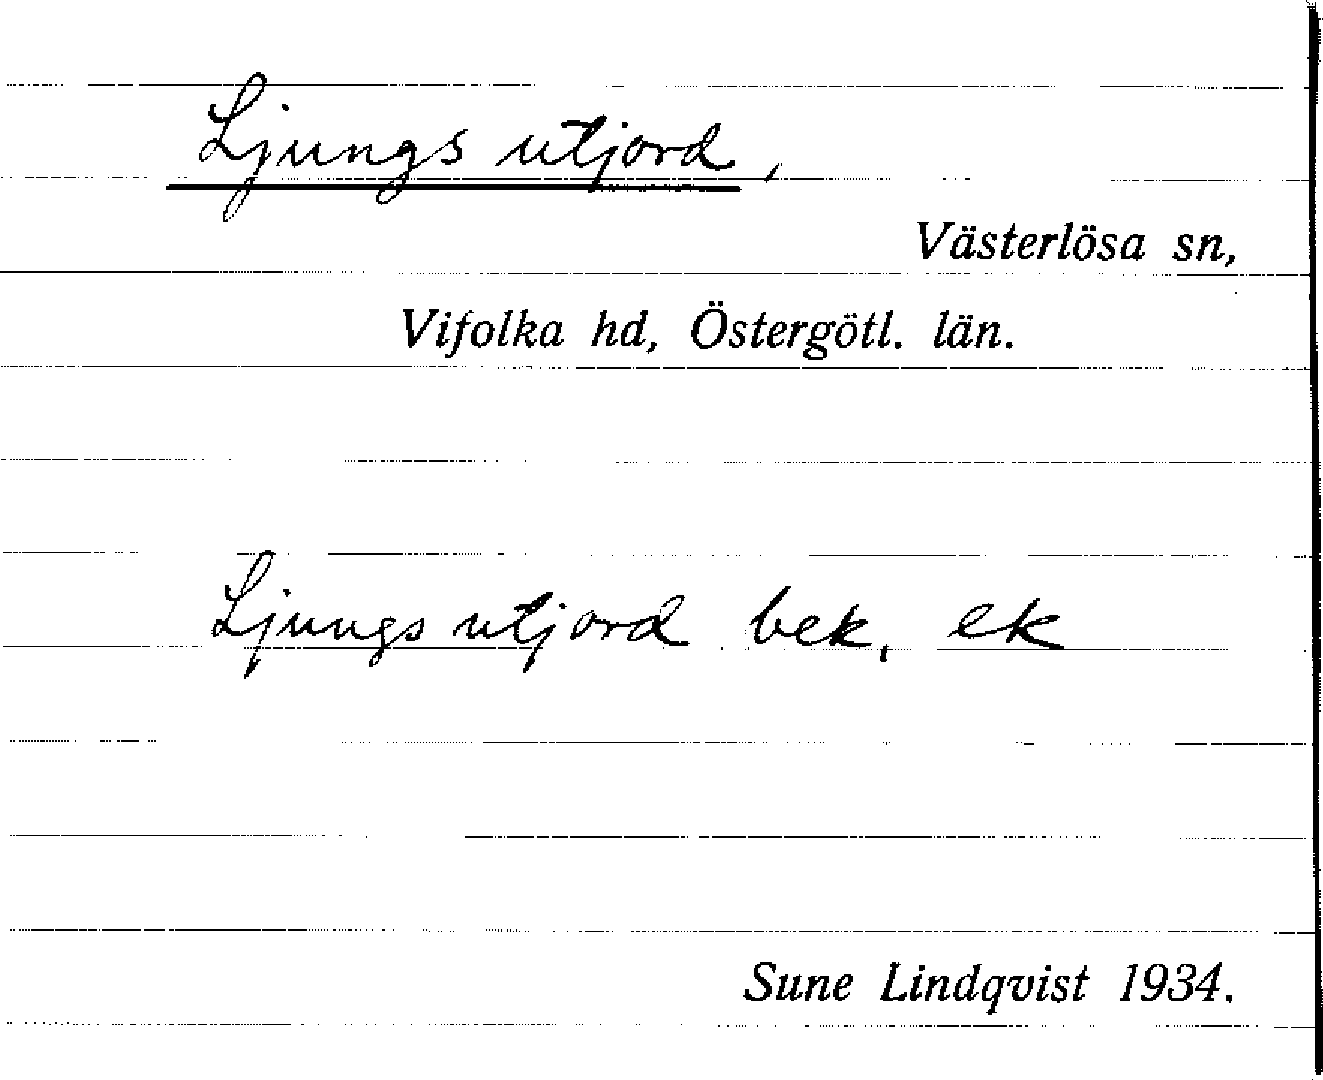 Ljungs utjord,
Västerlösa sn,
Vifolka hd, Östergötl. län.
Ljungs utjord bek, ek
Sune Lindqvist 1934.